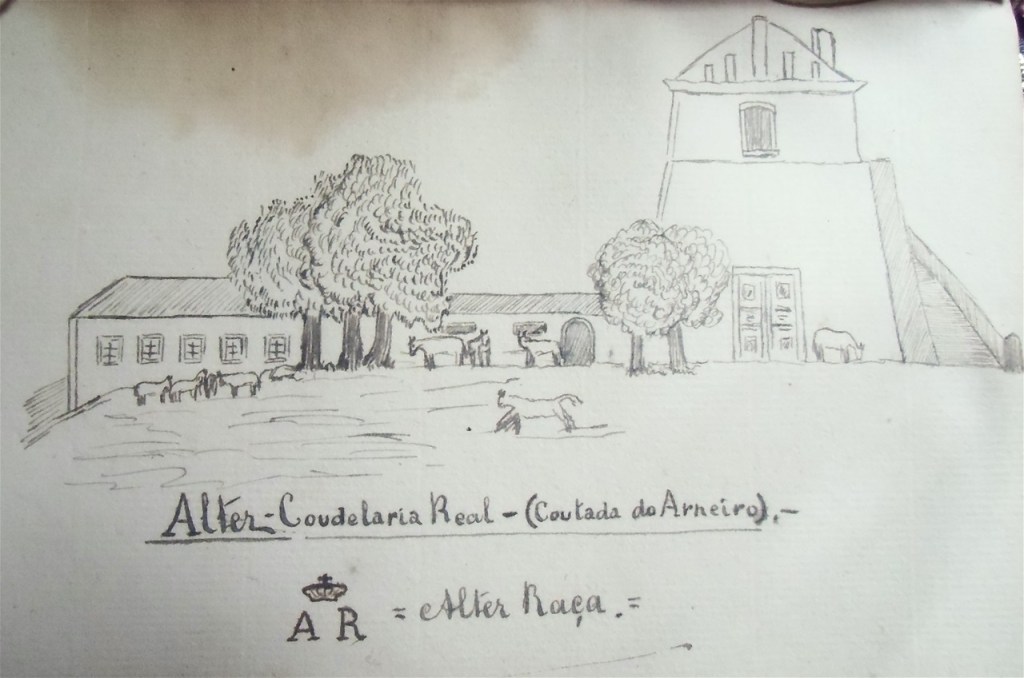 Alter - Coudelaria Real - (Coutada do Arneiro). -
A R = Alter Raça. =